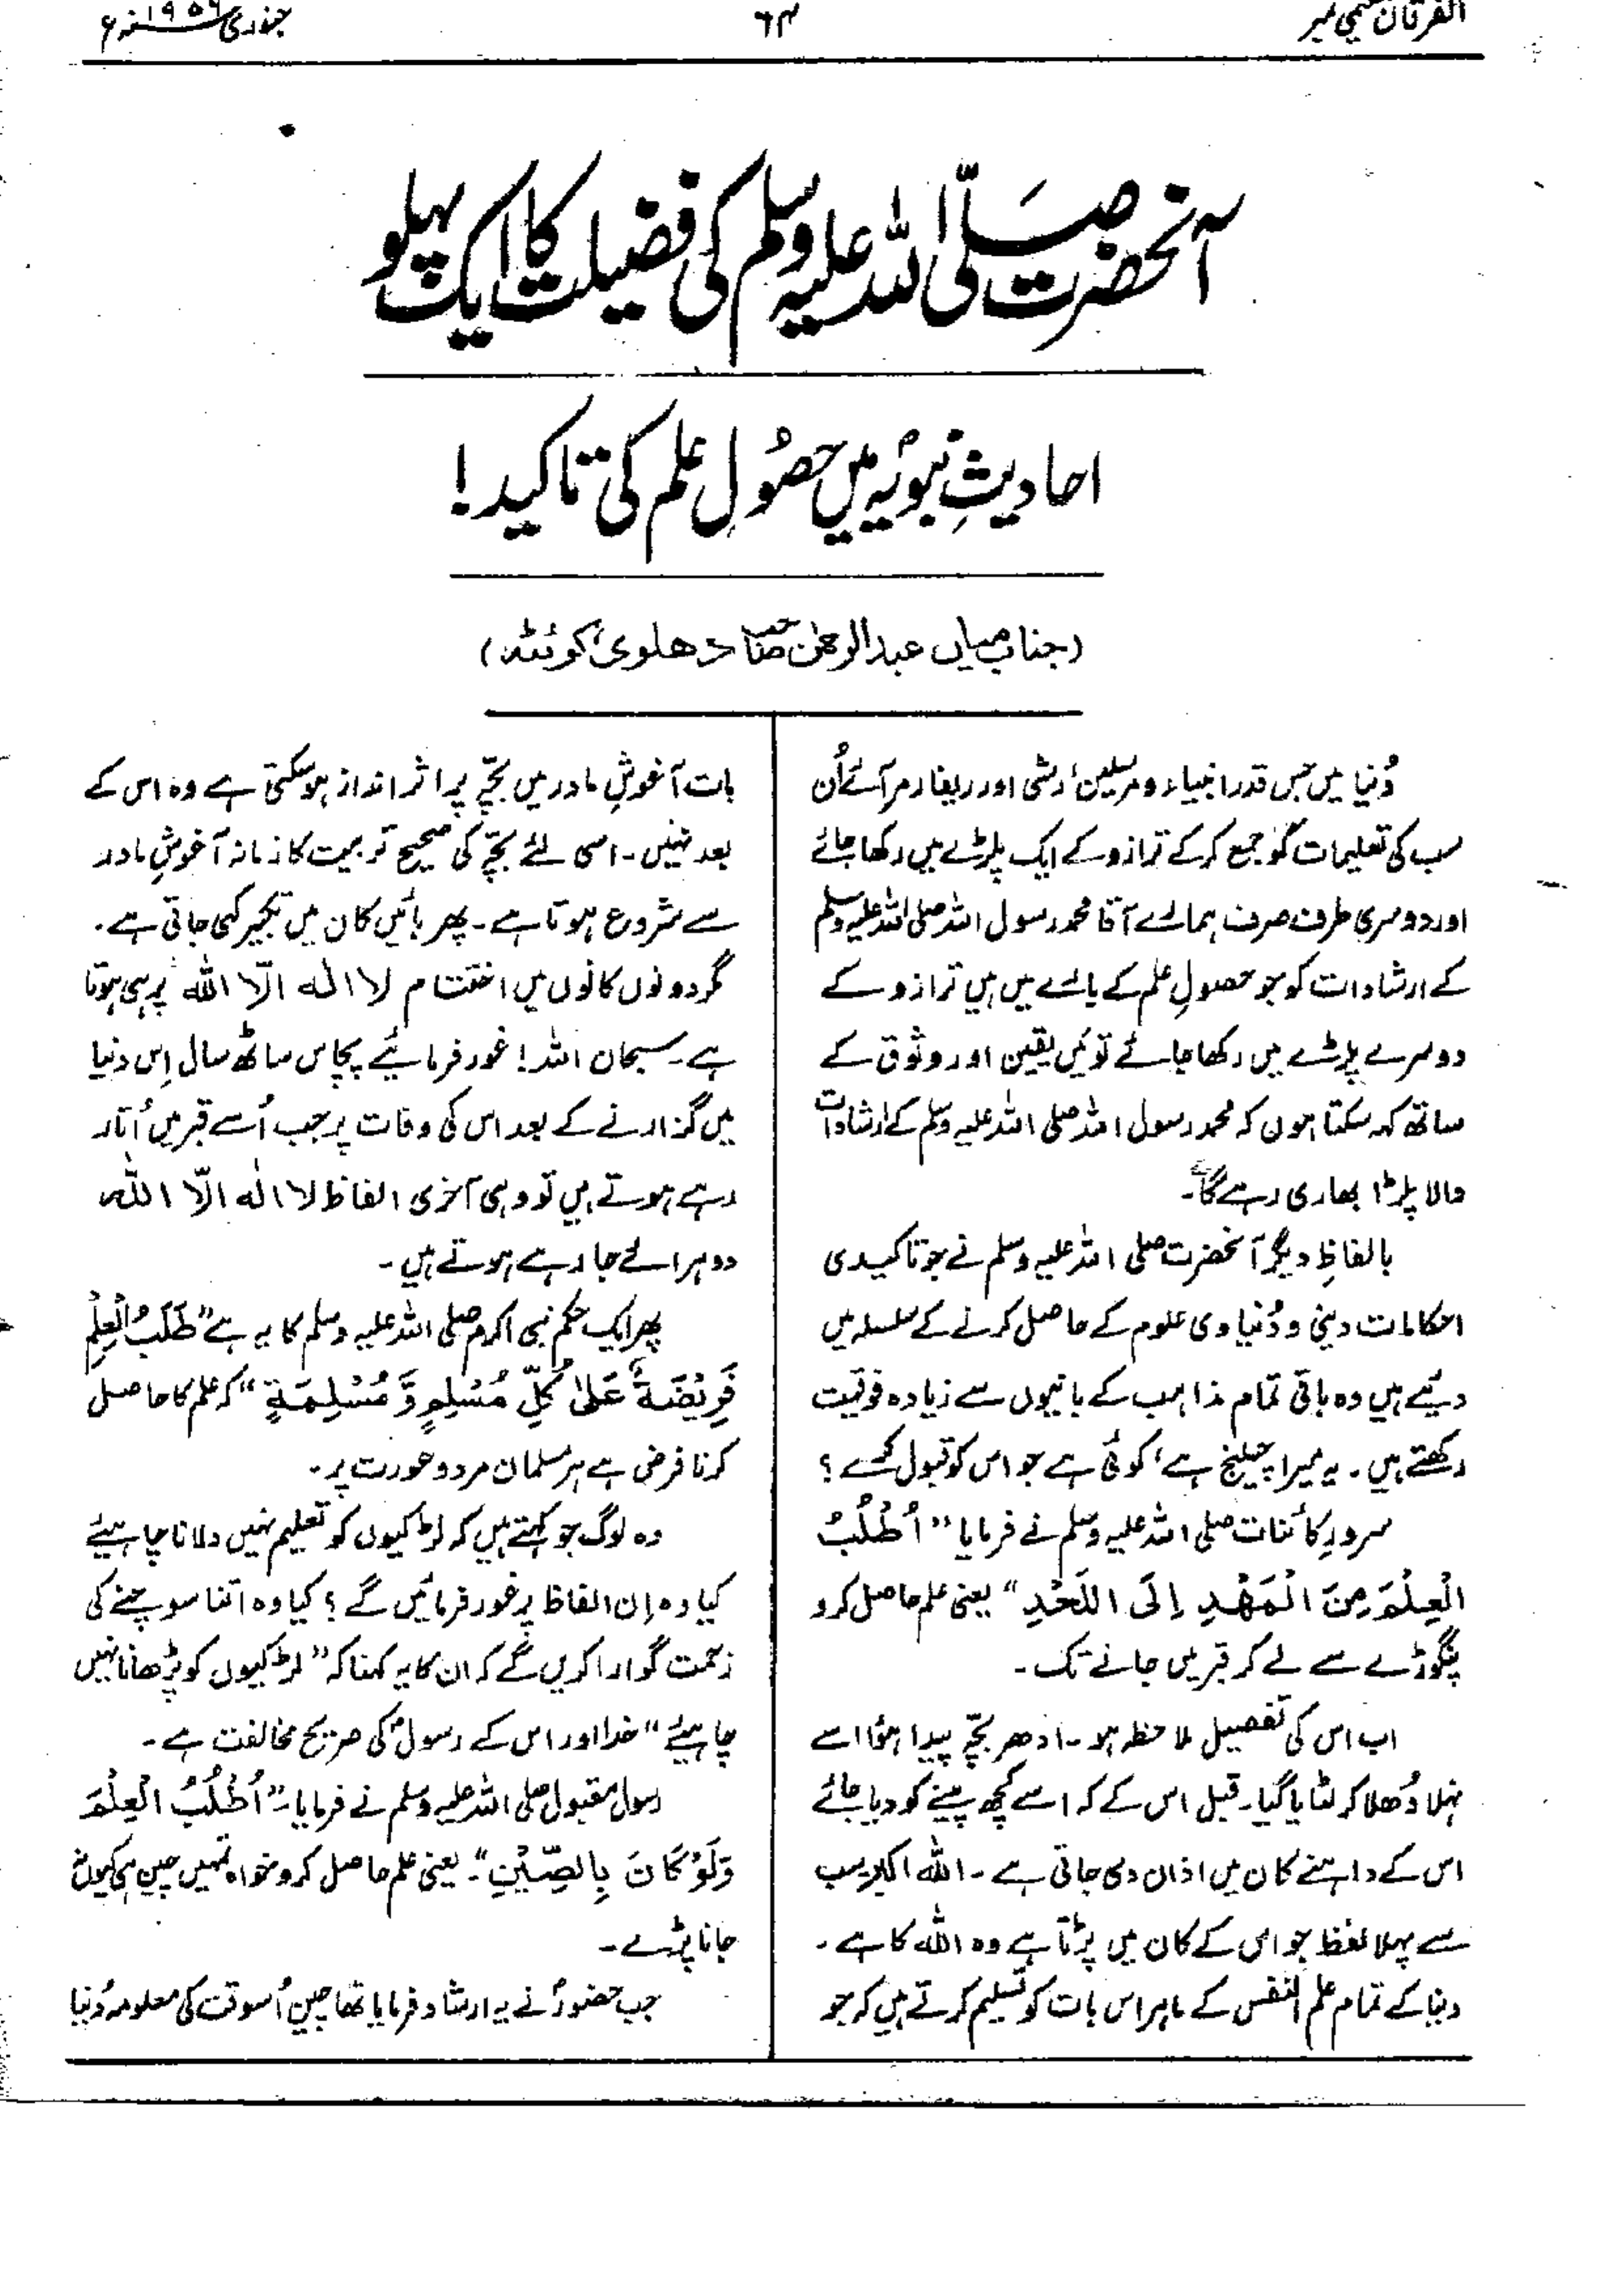 الفرقان نمبر
۶۴
جنوری ۱۹۵۶ء
آنحضرت صلّی اللہ علیہ وسلم کی فضیلت کا ایک پہلو
احادیثِ نبویہؐ میں حصُولِ علم کی تاکید!
(جناب میاں عبدالرحمٰن صاحب دھلوی، کوئٹہ)
دُنیا میں جس قدر انبیاء و مرسلین، رشی اور ریفارمر آئے اُن
سب کی تعلیمات کو جمع کرکے ترازو کے ایک پلڑے میں رکھا جائے
اور دوسری طرف صرف ہمارے آقا محمد رسول اللہ صلی اللہ علیہ وسلم
کے ارشادات کو جو حصولِ علم کے بارے میں ہیں ترازو کے
دوسرے پلڑے میں رکھا جائے تو مَیں یقین اور وثوق کے
ساتھ کہہ سکتا ہوں کہ محمد رسول اللہ صلی اللہ علیہ وسلم کے ارشادات
والا پلڑا بھاری رہے گا۔
بالفاظِ دیگر آنحضرت صلی اللہ علیہ وسلم نے جو تاکیدی
احکامات دینی و دُنیاوی علوم کے حاصل کرنے کے سلسلہ میں
دیئے ہیں وہ باقی تمام مذاہب کے بانیوں سے زیادہ فوقیت
رکھتے ہیں۔ یہ میرا چیلنج ہے، کوئی ہے جو اس کو قبول کرے؟
سرورِ کائنات صلی اللہ علیہ وسلم نے فرمایا ”اُطْلُبُ
الْعِلْمَ مِنَ الْمَهْدِ اِلَی اللَّحْدِ“ یعنی علم حاصل کرو
پنگوڑے سے لے کر قبر میں جانے تک۔
اب اس کی تفصیل ملاحظہ ہو۔ ادھر بچّہ پیدا ہؤا اسے
نہلا دُھلا کر لٹایا گیا۔ قبل اس کے کہ اسے کچھ پینے کو دیا جائے
اس کے داہنے کان میں اذان دی جاتی ہے۔ اللہ اکبر سب
سے پہلا لفظ جو اس کے کان میں پڑتا ہے وہ اللہ کا ہے۔
دنیا کے تمام علم النفس کے ماہر اس بات کو تسلیم کرتے ہیں کہ جو
بات آغوشِ مادر میں بچّے پر اثر انداز ہوسکتی ہے وہ اس کے
بعد نہیں۔ اسی لئے بچّے کی صحیح تربیت کا زمانہ آغوشِ مادر
سے شروع ہوتا ہے۔ پھر بائیں کان میں تکبیر کہی جاتی ہے۔
مگر دونوں کانوں میں اختتام لا الٰہ الّا اللہ پر ہی ہوتا
ہے۔ سبحان اللہ! غور فرمائیے پچاس ساٹھ سال اِس دنیا
میں گزارنے کے بعد اس کی وفات پر جب اُسے قبر میں اُتار
رہے ہوتے ہیں تو وہی آخری الفاظ لا الٰہ الّا اللہ
دوہرائے جا رہے ہوتے ہیں۔
پھر ایک حکم نبی اکرم صلی اللہ علیہ وسلم کا یہ ہے ”طَلَبُ الْعِلْمِ
فَرِیْضَةٌ عَلیٰ کُلِّ مُسْلِمٍ وَّ مُسْلِمَةٍ“ کہ علم کا حاصل
کرنا فرض ہے ہر مسلمان مرد و عورت پر۔
وہ لوگ جو کہتے ہیں کہ لڑکیوں کو تعلیم نہیں دلانا چاہیئے
کیا وہ اِن الفاظ پر غور فرمائیں گے؟ کیا وہ اتنا سوچنے کی
زحمت گوارا کریں گے کہ ان کا یہ کہنا کہ ”لڑکیوں کو پڑھانا نہیں
چاہیئے“ خدا اور اس کے رسولؐ کی صریح مخالفت ہے۔
رسول مقبول صلی اللہ علیہ وسلم نے فرمایا:۔ ”اُطْلُبُ الْعِلْمَ
وَلَوْ کَانَ بِالصِّیْنِ“۔ یعنی علم حاصل کرو خواہ تمہیں چین ہی کیوں نہ
جانا پڑے۔
جب حضورؐ نے یہ ارشاد فرمایا تھا چین اُسوقت کی معلومہ دُنیا